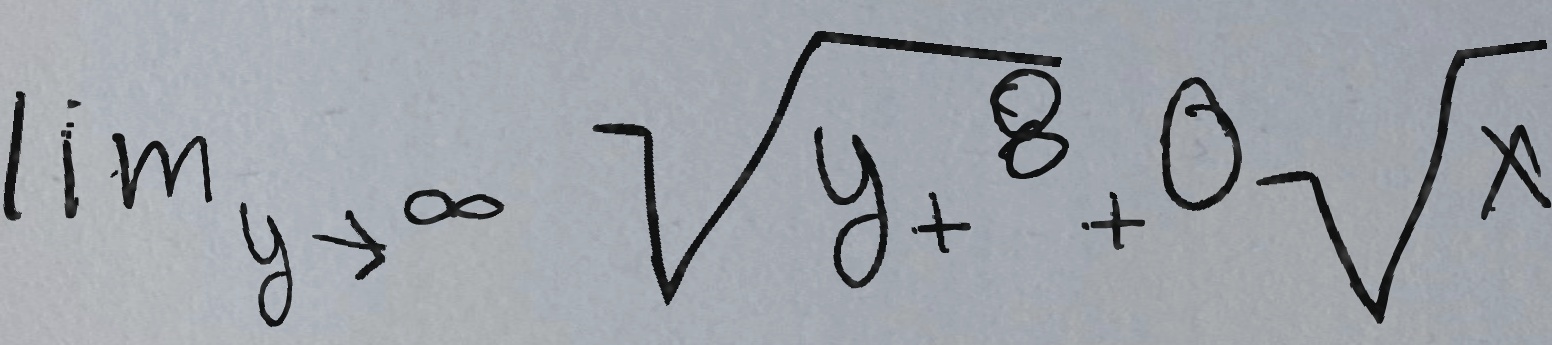 lim y→∞ √y+8 + 0√x